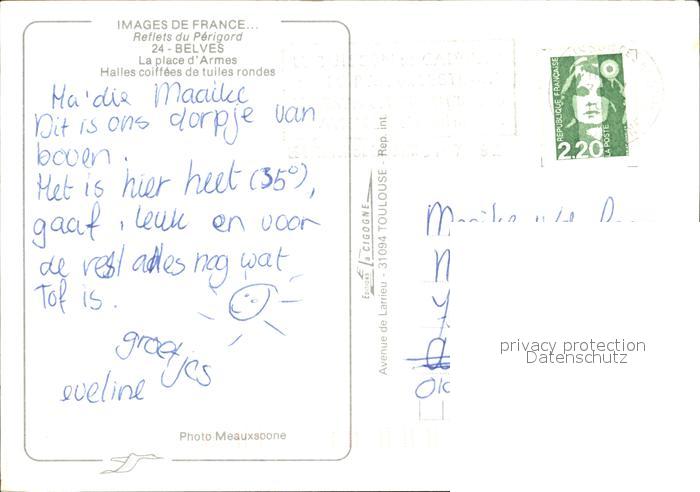 IMAGES DE FRANCE...
Reflets du Périgord
24 - BELVES
La place d'Armes
Halles coiffées de tuiles rondes
Ha'die Maaike
Dit is ons dorpje van
boven.
Het is hier heet (35°),
gaaf, leuk en voor
de rest alles nog wat
Tof is.
groetjes
eveline
Photo Meauxsoone
Editions La CIGOGNE
Avenue de Larrieu - 31094 TOULOUSE - Rep. int.
REPUBLIQUE FRANÇAISE
LA POSTE
2,20
Maaike
privacy protection
Datenschutz